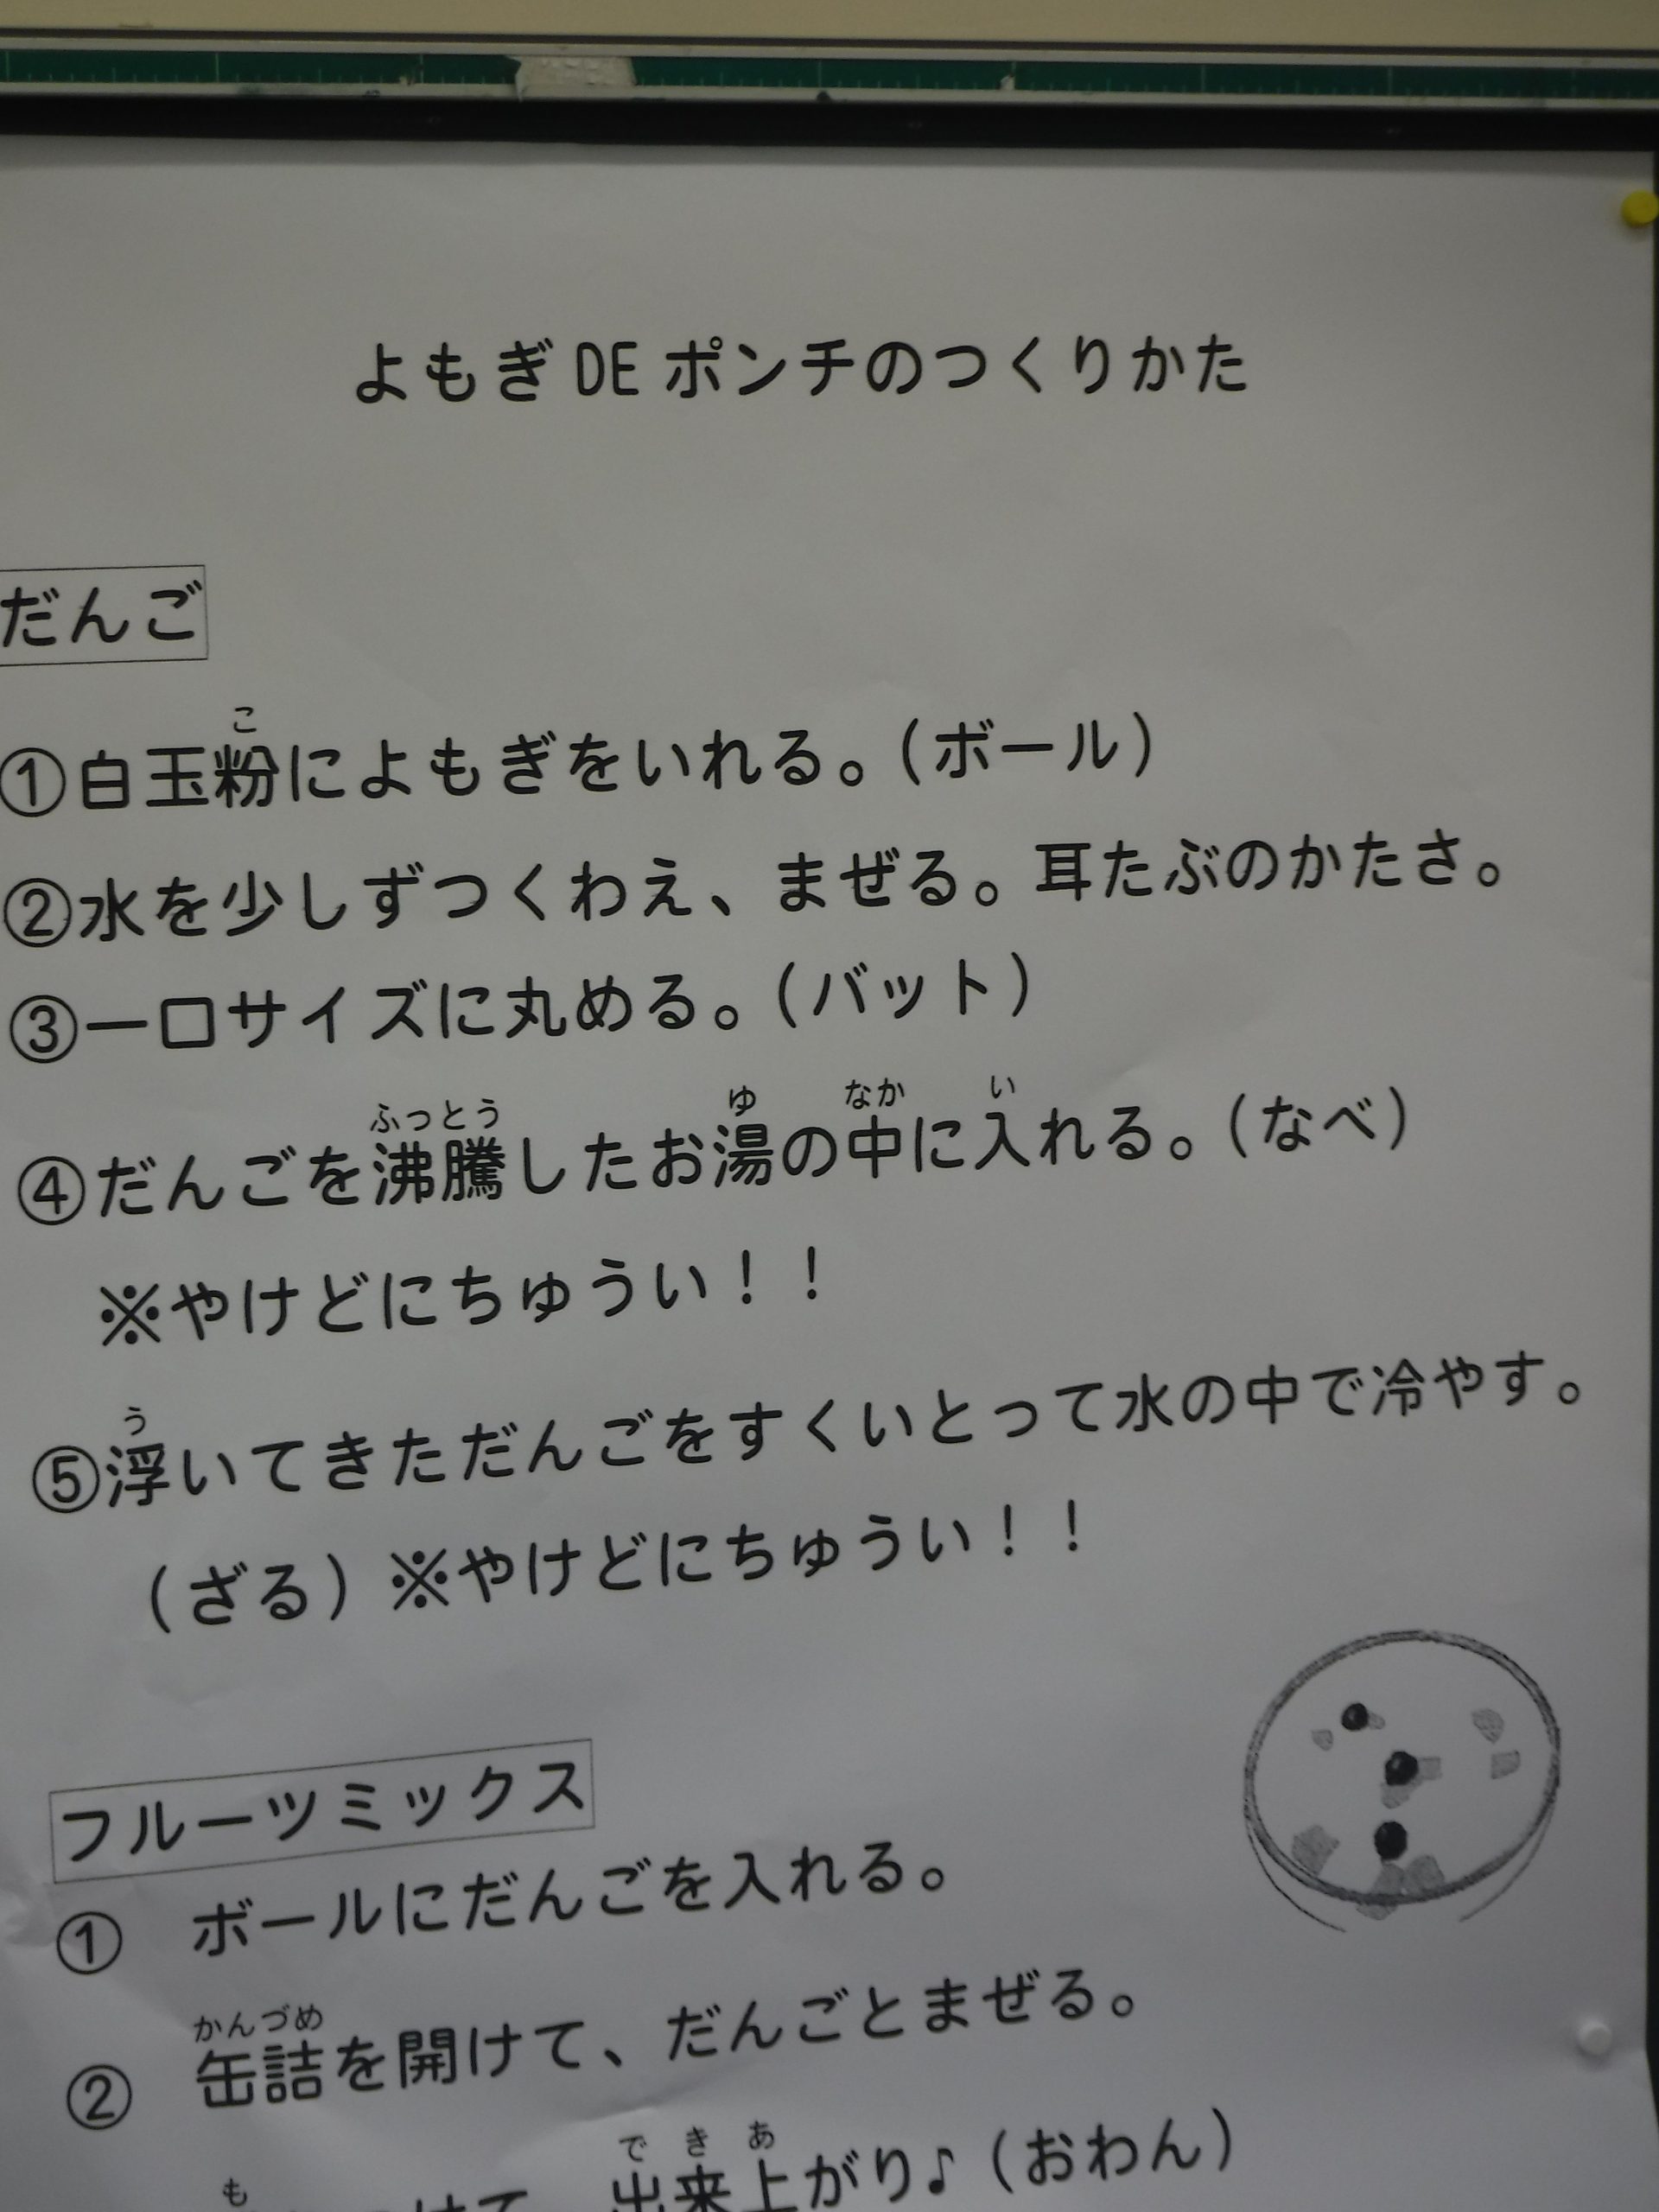 よもぎDEポンチのつくりかた
だんご
こ
①白玉粉によもぎをいれる。（ボール）
②水を少しずつくわえ、まぜる。耳たぶのかたさ。
③一口サイズに丸める。（バット）
ふっとう ゆ なか い
④だんごを沸騰したお湯の中に入れる。（なべ）
※やけどにちゅうい！！
う
⑤浮いてきただんごをすくいとって水の中で冷やす。
（ざる）※やけどにちゅうい！！
フルーツミックス
① ボールにだんごを入れる。
かんづめ
② 缶詰を開けて、だんごとまぜる。
も で き あ
けて、出来上がり♪（おわん）